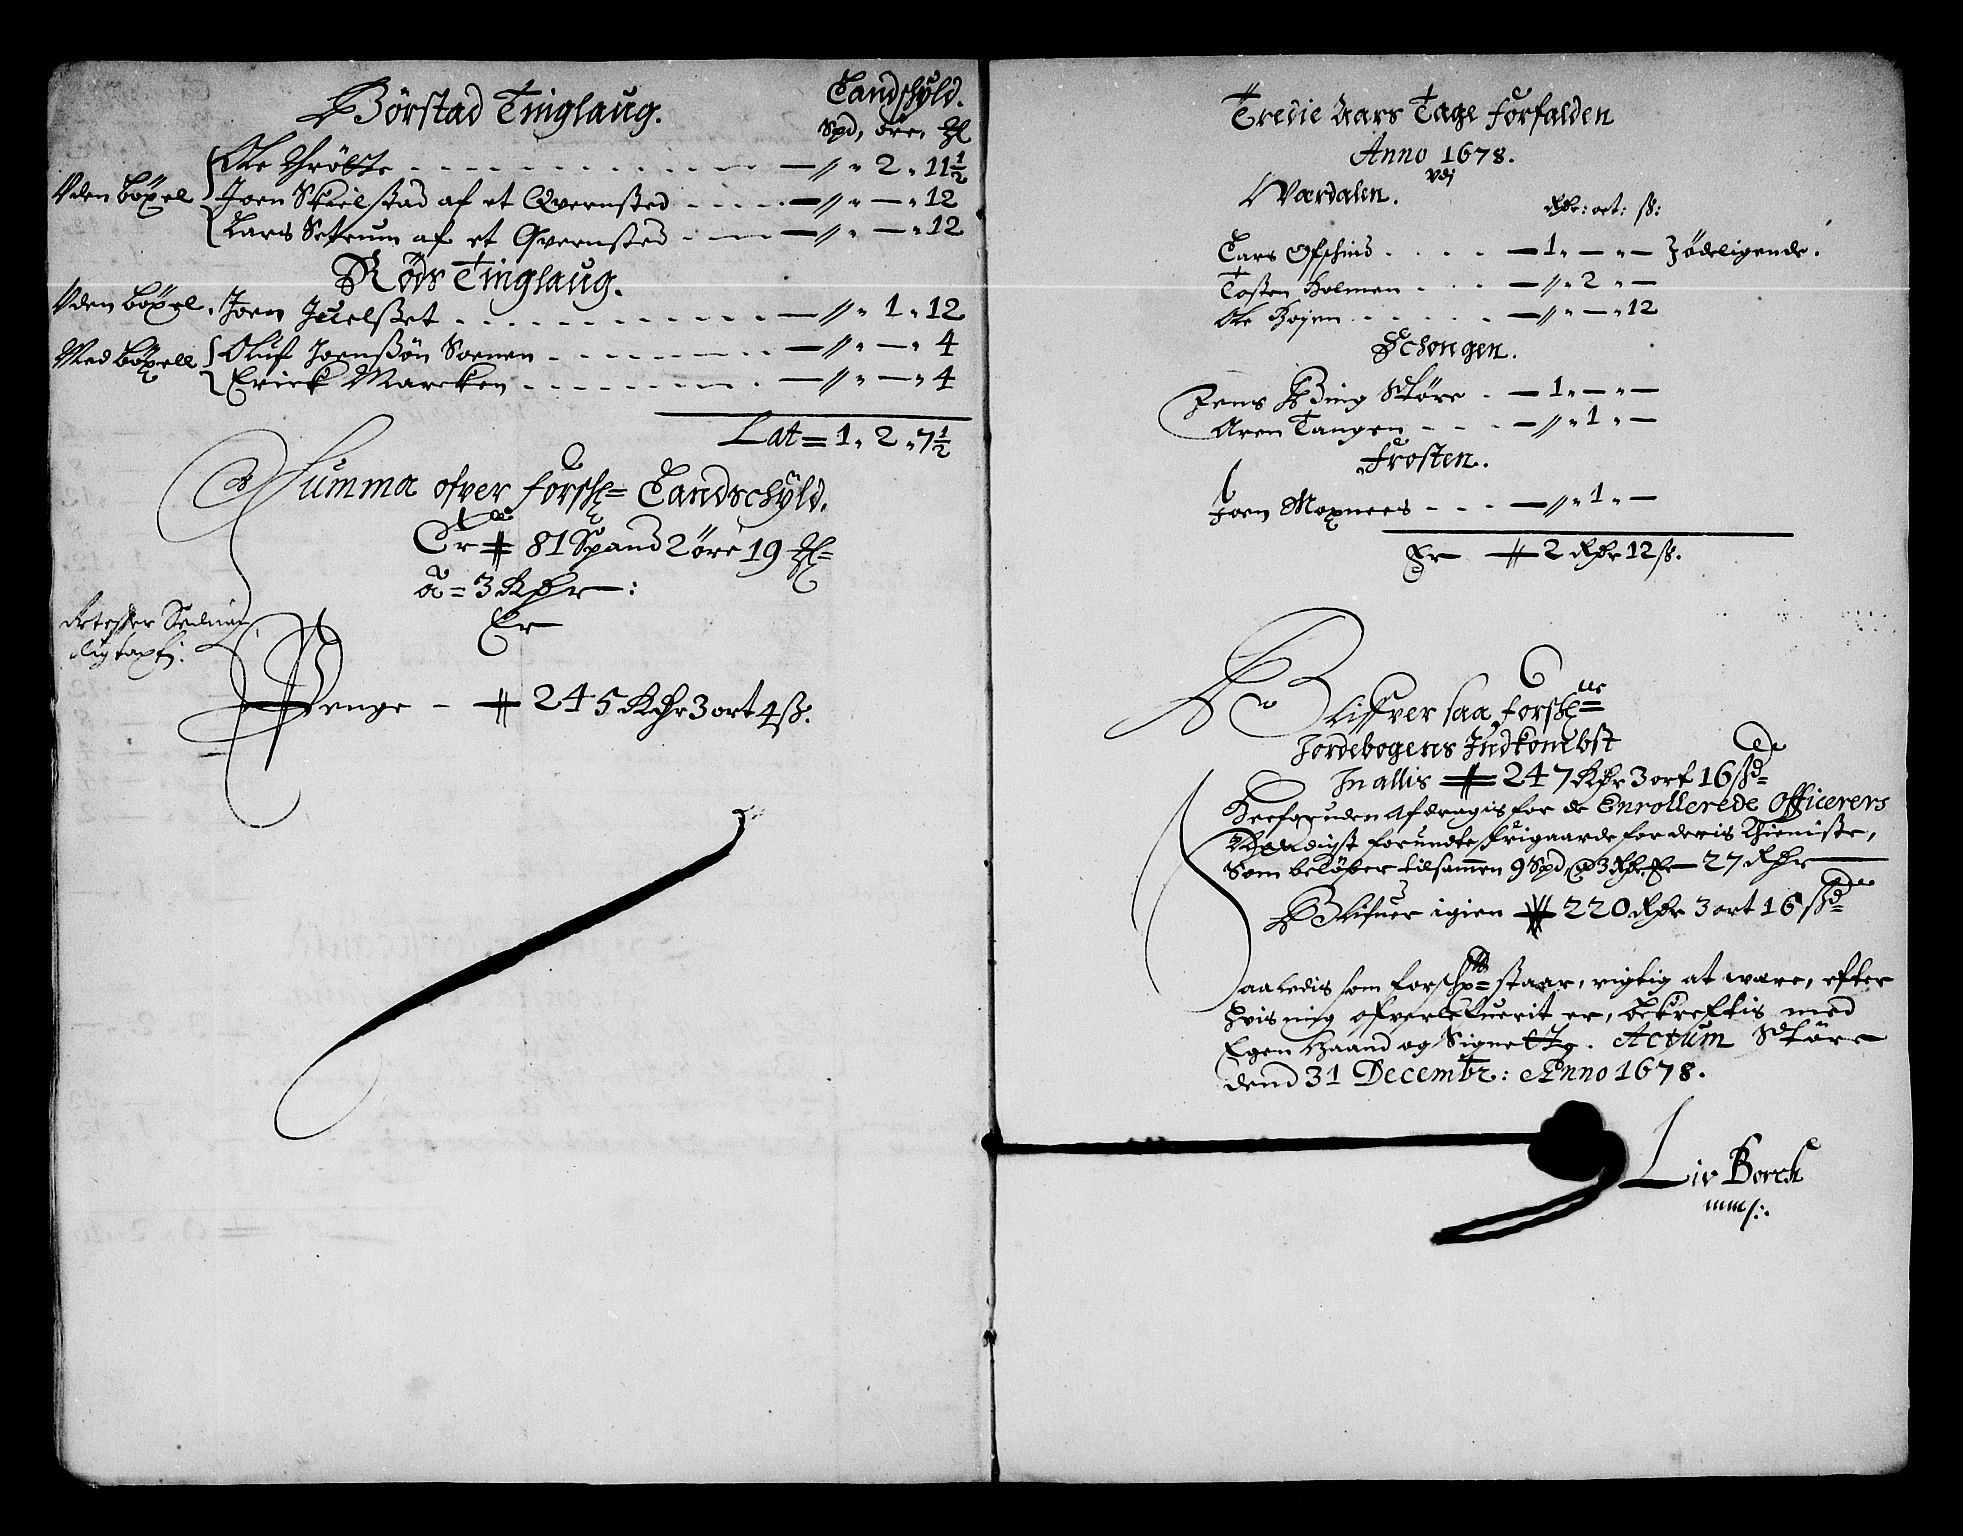 Börstad Tinglaug.
Landschyld.
Spd, öre,
Ole Grötte — // „ 2 „ 11½
Uden böxel Joen Skielstad af et Qvernsted — // „ — „ 12
Lars Setrum af et Qvernsted — // „ — „ 12
Röds Tinglaug.
Uden böxel. Joen Juelset — // „ 1 „ 12
Med böxell Oluf Joensön — // „ — „ 4
Erick Marcken — // „ — „ 4
Lat = 1 „ 2 „ 7½
Summa ofver forskr= Landschyld.
Er 81 Spand 2 öre 19
a = 3 Rdr:
Er
Penge — 245 Rdr 3 ort 4 ß.
Tredie Aars Tage forfalden
Anno 1678.
udj
Værdalen.
Rdr: ort: ß:
Lars — 1 „ — „ — Jödeligende.
Tosten Holmen — // „ 2 „ —
Ole — // „ — „ 12
Schongen.
Jens Bing Störe — 1 „ — „ —
Aren Tangen — // „ 1 „ —
Frosten.
Joen Moxnees — // „ 1 „ —
Er 2 Rdr 12 ß.
Bliffver saa forskne
Jordebogens Indkombst
In allis 247 Rdr 3 ort 16 ß
Heeforuden Afdragis for de Enrollerede Officerers
forundte frigaarde for deris Thieniste,
Som belöber tilsammen 9 Spd, @ 3 Rdr. Er 27 Rdr
Blifuer igien 220 Rdr 3 ort 16 ß
Saaledis som forschr= staar, rigtig at ware, efter
hvis mig ofverlefuerit er, bekreftis med
Egen Haand og Signette. Actum Störe
dend 31 Decembr: Anno 1678.
Liv Borch
mm/:.